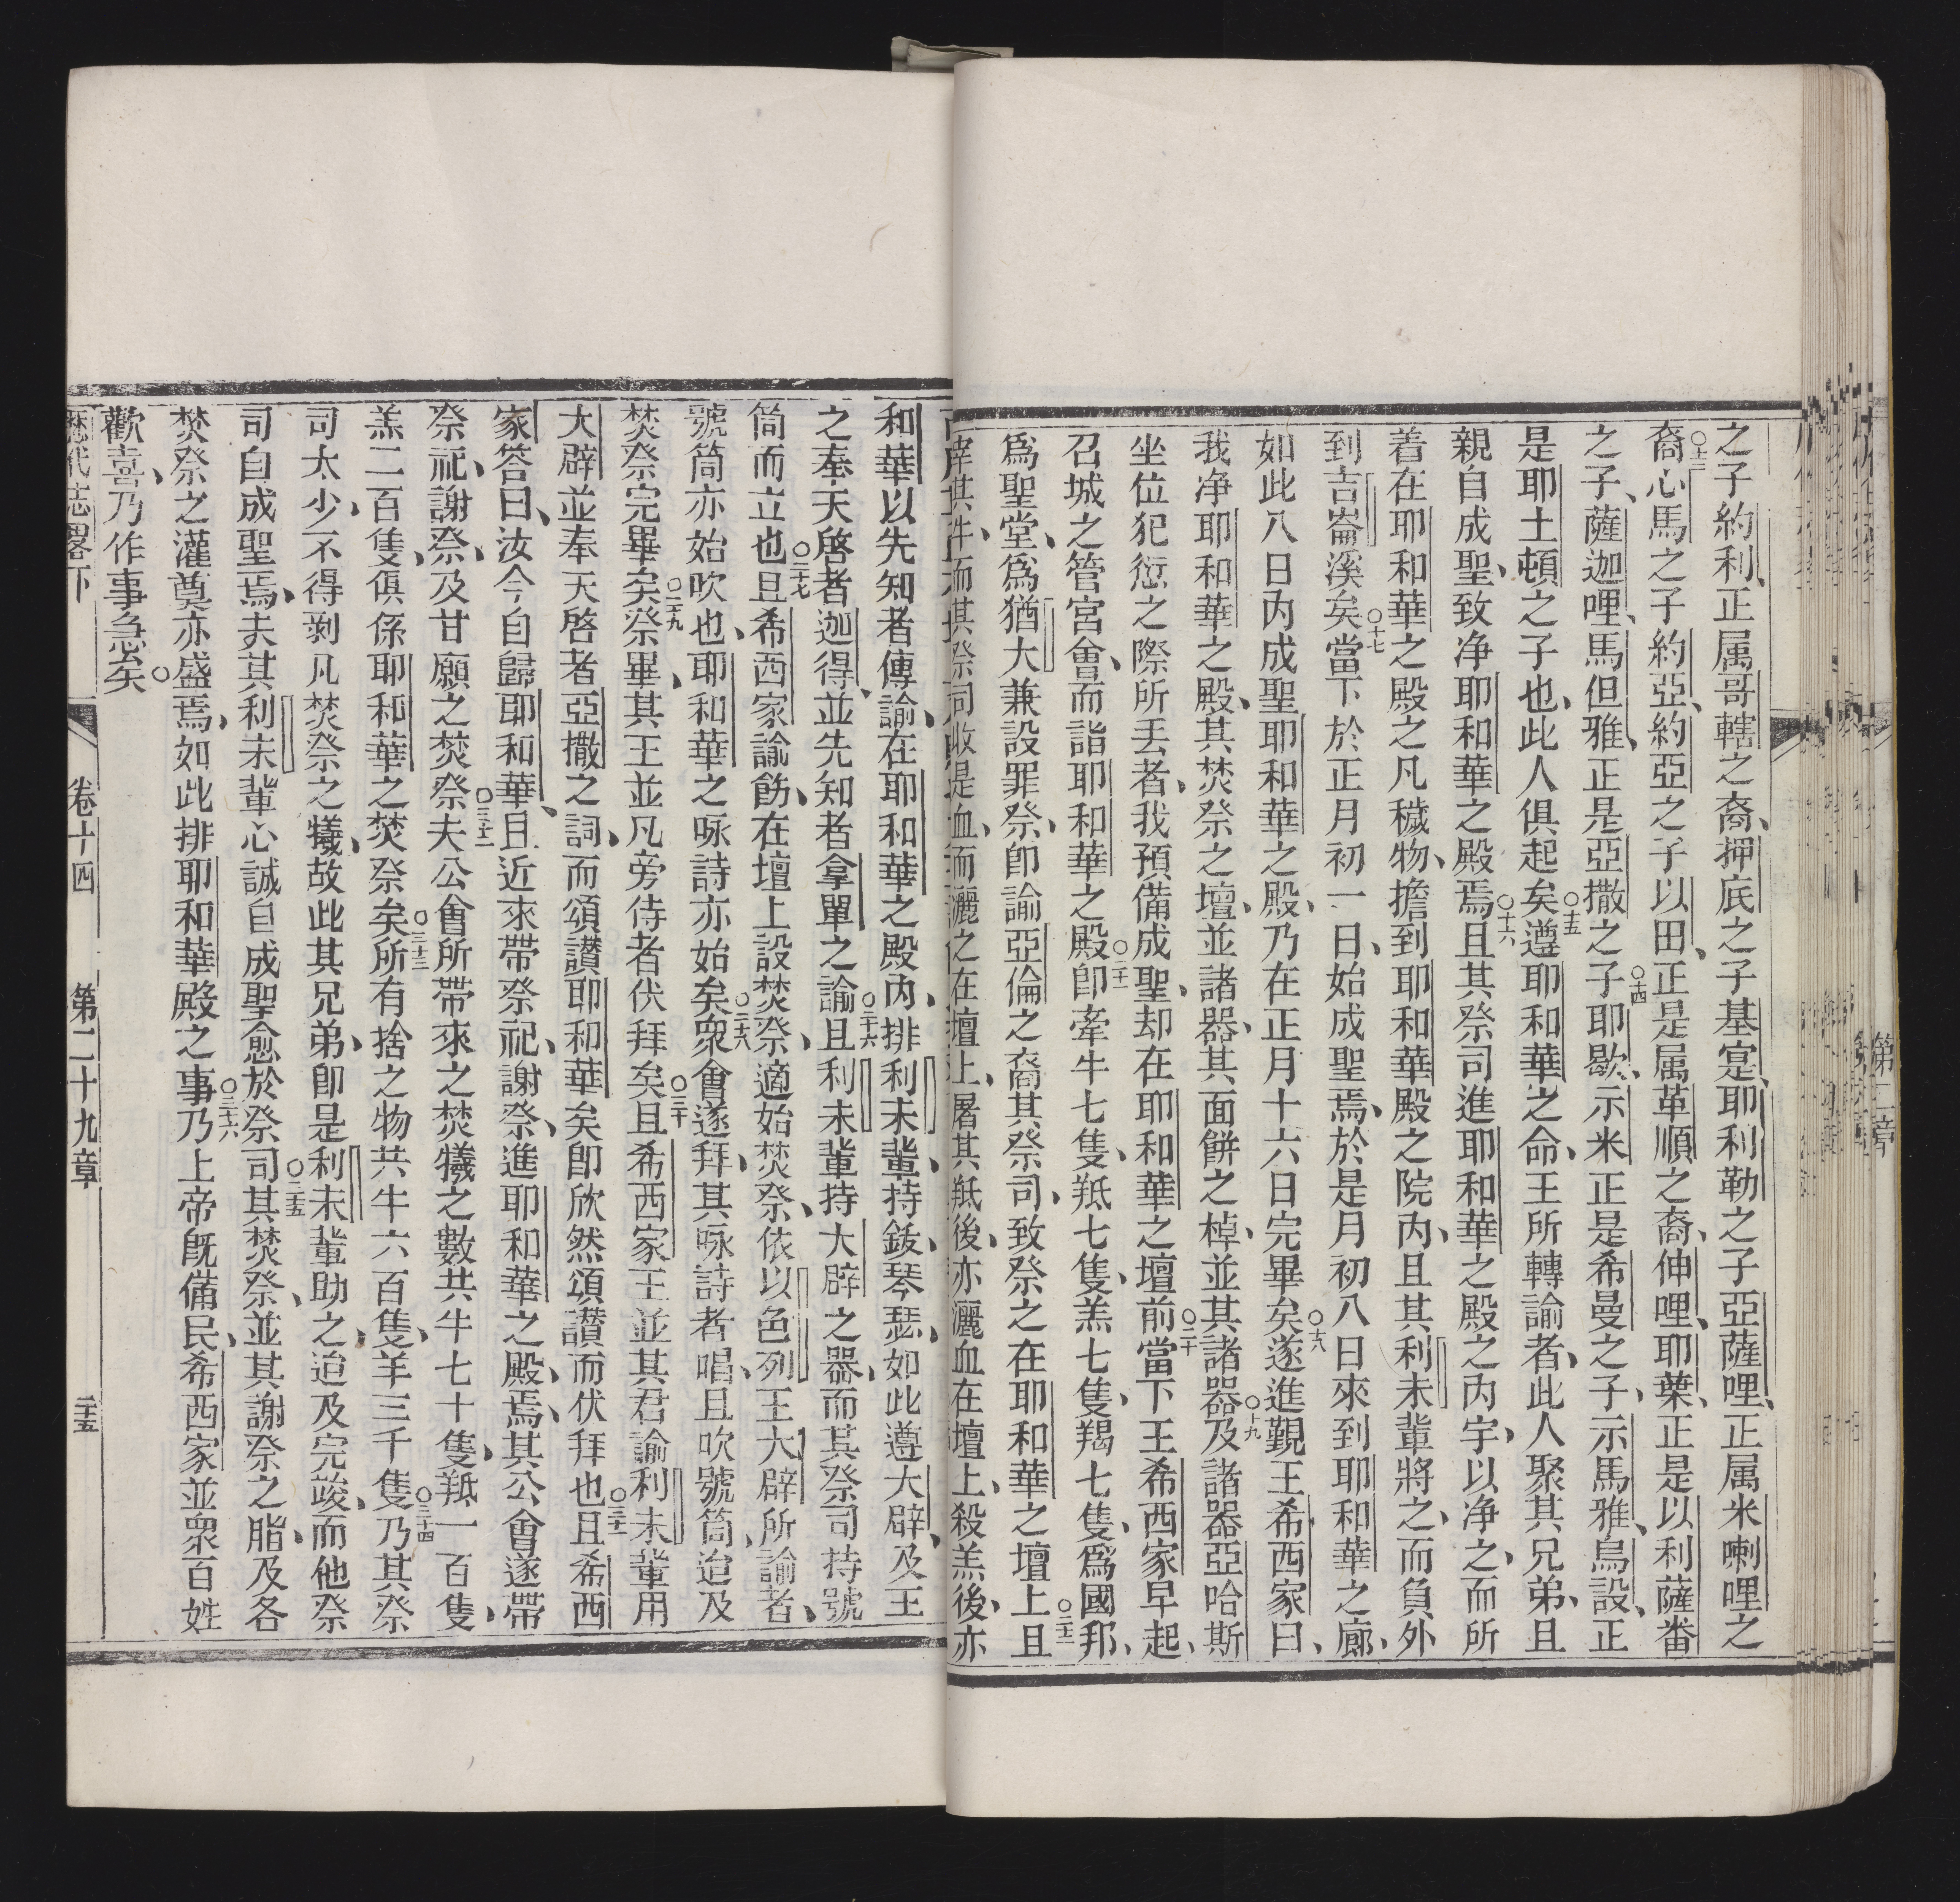 之子約利、正属哥轄之裔、押底之子基寔、耶利勒之子亞薩哩、正属米喇哩之
裔○十三心馬之子約亞、約亞之子以田、正是属革順之裔、伸哩、耶葉、正是以利薩番
之子、薩迦哩、馬但雅、正是亞撒之子○十四耶歇、示米正是希曼之子、示馬雅、烏設、正
是耶土頓之子也、此人俱起矣○十五遵耶和華之命、王所轉諭者、此人聚其兄弟、且
親自成聖、致净耶和華之殿焉○十六且其祭司進耶和華之殿之內宇、以净之、而所
着在耶和華之殿之凡穢物、擔到耶和華殿之院內、且其利未輩將之、而負外
到吉崙溪矣○十七當下於正月初一日、始成聖焉、於是月初八日來到耶和華之廊、
如此八日內成聖耶和華之殿、乃在正月十六日完畢矣○十八遂進覲王希西家曰、
我净耶和華之殿、其焚祭之壇、並諸器、其面餅之棹、並其諸器○十九及諸器亞哈斯
坐位犯愆之際所丟者、我預備成聖、却在耶和華之壇前○二十當下王希西家早起、
召城之管宮會、而詣耶和華之殿○二十一卽牽牛七隻、羝七隻、羔七隻、羯七隻、爲國邦、
爲聖堂、爲猶大兼設罪祭、卽諭亞倫之裔其祭司、致祭之在耶和華之壇上○二十二且
宰其牛、而其祭司收是血、而灑之在壇上、屠其羝後、亦灑血在壇上、殺羔後、亦
和華以先知者傳諭、在耶和華之殿內、排利未輩、持鈸、琴瑟、如此遵大辟、及王
之奉天啓者迦得、並先知者拿單之諭○二十六且利未輩持大辟之器、而其祭司持號
筒而立也○二十七且希西家諭飭、在壇上設焚祭、適始焚祭、依以色列王大辟所諭者、
號筒亦始吹也、耶和華之咏詩亦始矣○二十八衆會遂拜、其咏詩者唱、且吹號筒、迨及
焚祭完畢矣○二十九祭畢、其王並凡旁侍者伏拜矣○三十且希西家王並其君諭利未輩用
大辟並奉天啓者亞撒之詞、而頌讚耶和華矣卽欣然頌讚而伏拜也○三十一且希西
家答曰、汝今自歸耶和華、且近來帶祭祀、謝祭、進耶和華之殿、焉、其公會遂帶
祭祀、謝祭、及甘願之焚祭○三十二夫公會所帶來之焚犧之數共牛七十隻、羝一百隻、
羔二百隻、俱係耶和華之焚祭矣○三十三所有捨之物共牛六百隻、羊三千隻○三十四乃其祭
司太少、不得剝凡焚祭之犧、故此其兄弟、卽是利未輩助之、迨及完竣、而他祭
司自成聖焉、夫其利未輩心誠自成聖愈於祭司○三十五其焚祭、並其謝祭之脂、及各
焚祭之灌奠亦盛焉、如此排耶和華殿之事○三十六乃上帝旣備民、希西家並衆百姓
歡喜、乃作事急矣。
歷代志畧下 卷十四 第二十九章 三十五